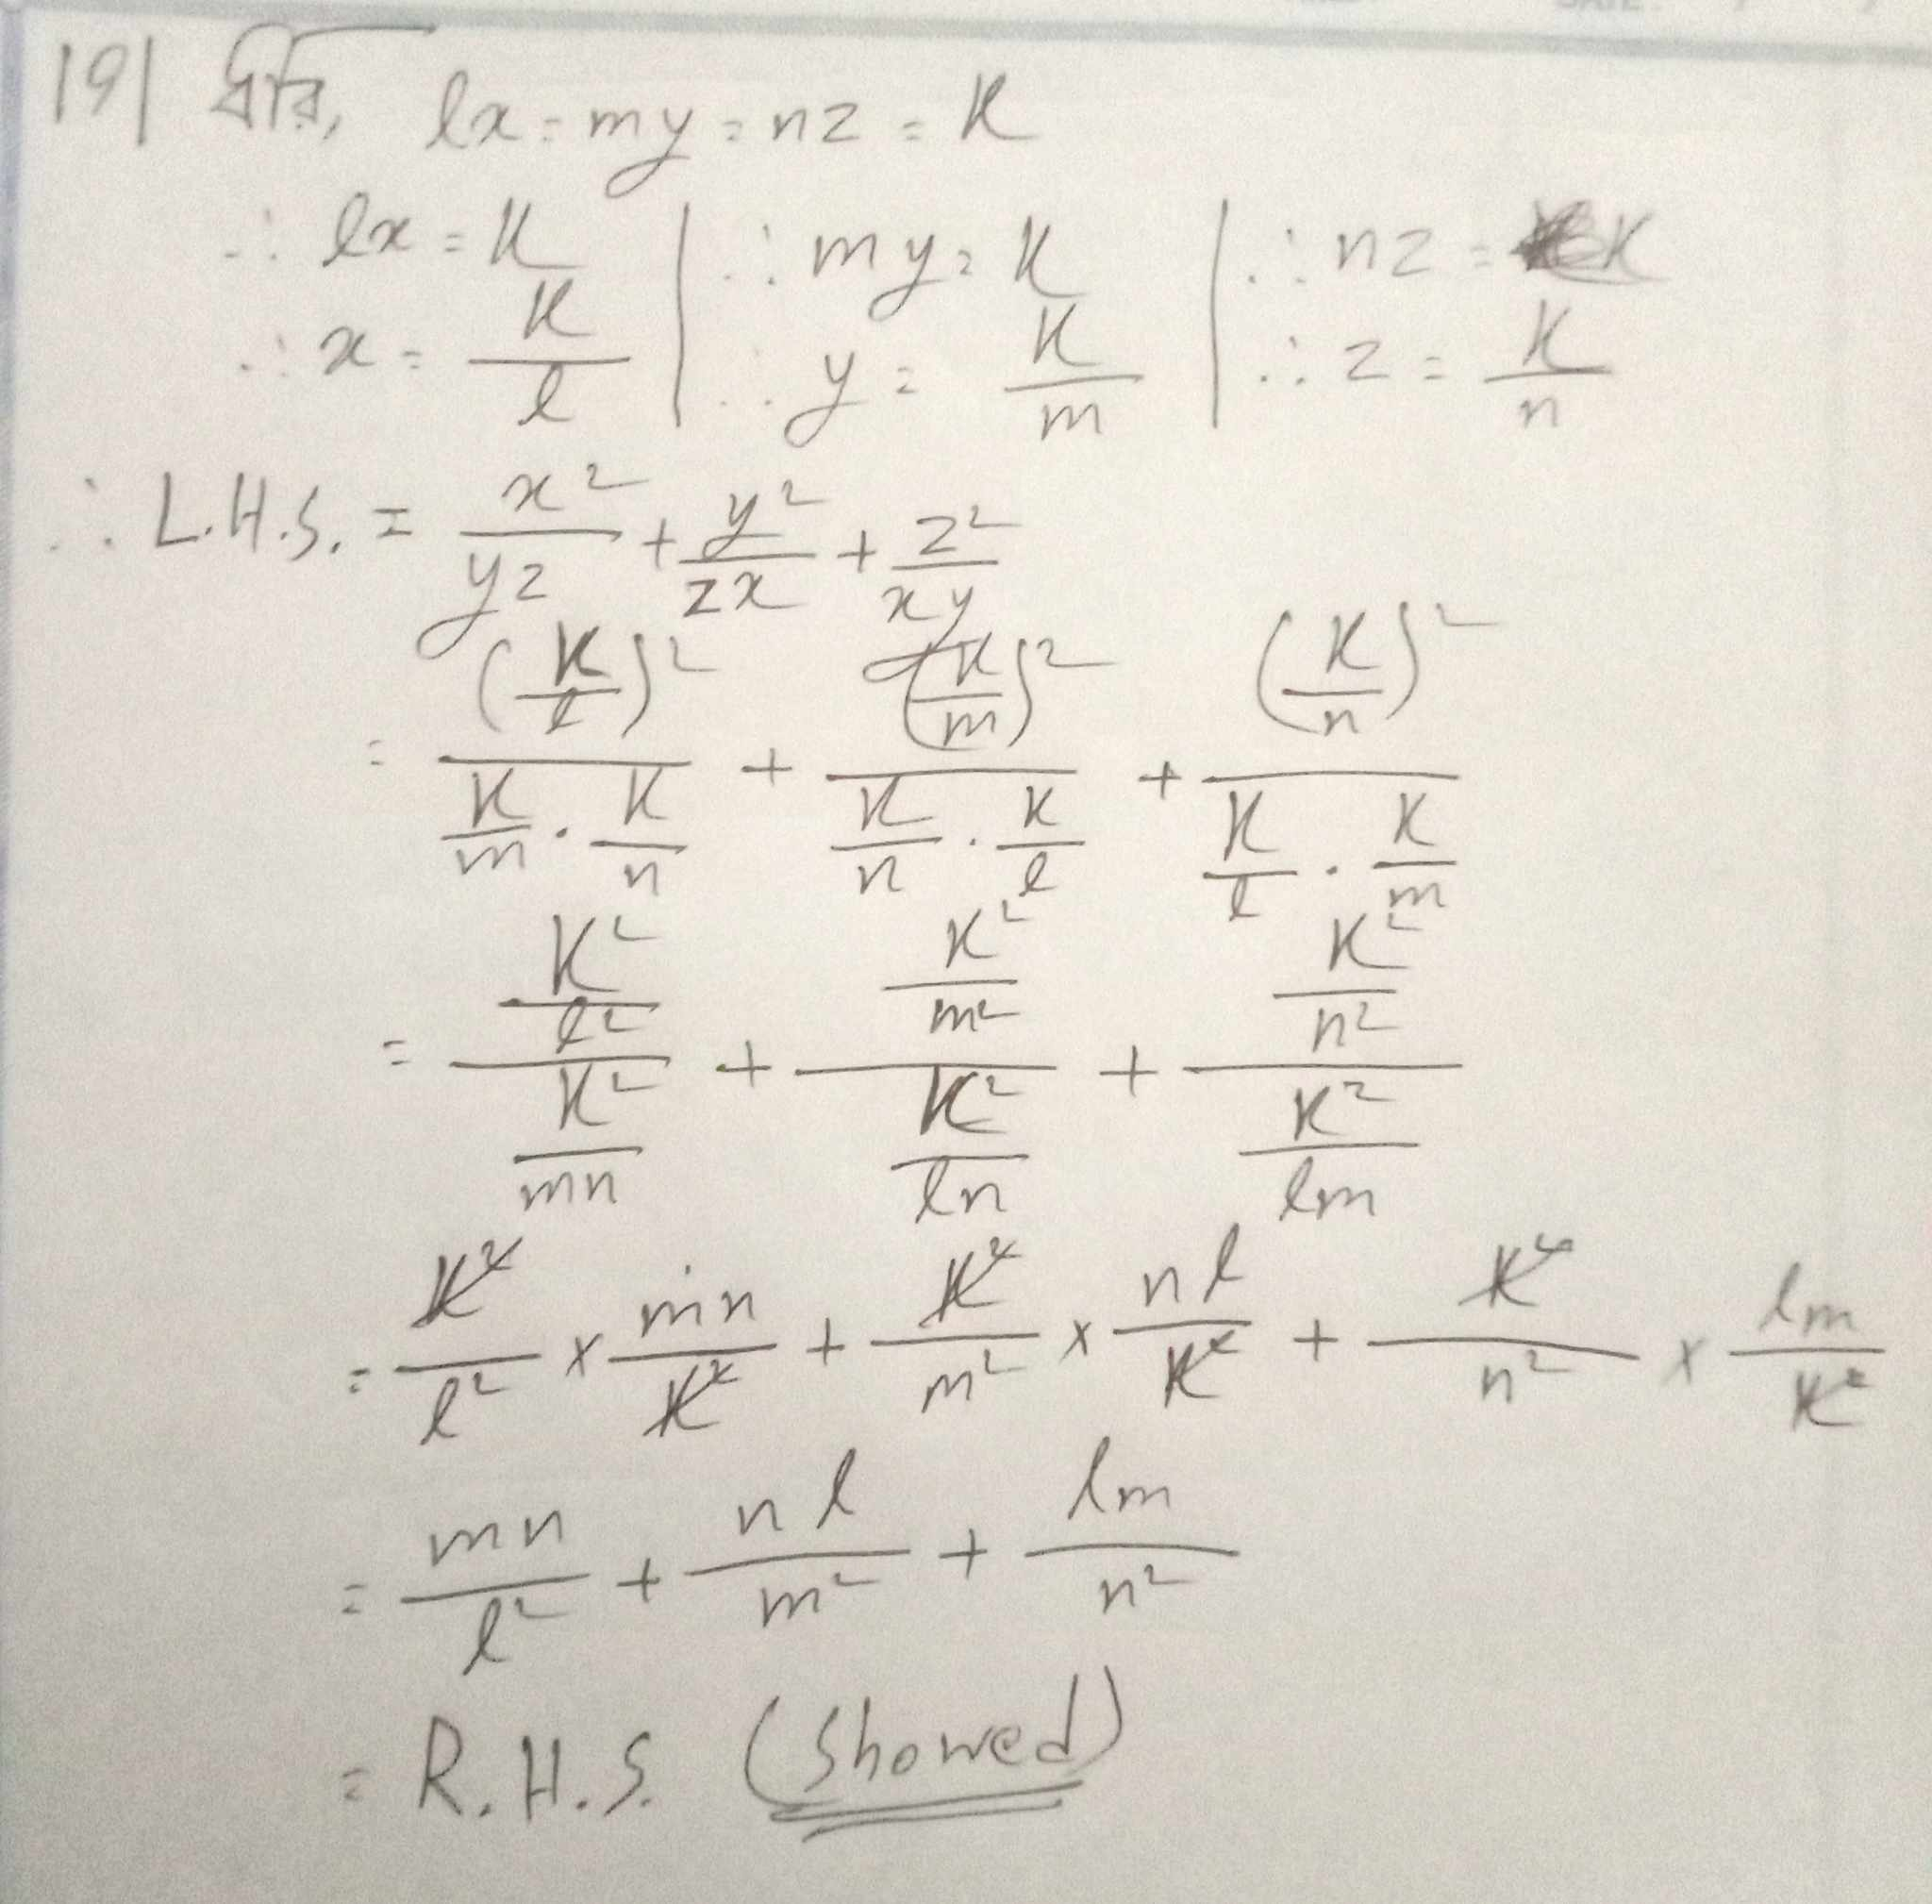 19| ধরি, lx = my = nz = K
∴ lx = K | ∴ my = K | ∴ nz = K
∴ x = K/l | ∴ y = K/m | ∴ z = K/n
∴ L.H.S. = x²/yz + y²/zx + z²/xy
= (K/l)²/(K/m · K/n) + (K/m)²/(K/n · K/l) + (K/n)²/(K/l · K/m)
= (K²/l²)/(K²/mn) + (K²/m²)/(K²/ln) + (K²/n²)/(K²/lm)
= K²/l² × mn/K² + K²/m² × nl/K² + K²/n² × lm/K²
= mn/l² + nl/m² + lm/n²
= R.H.S. (Showed)